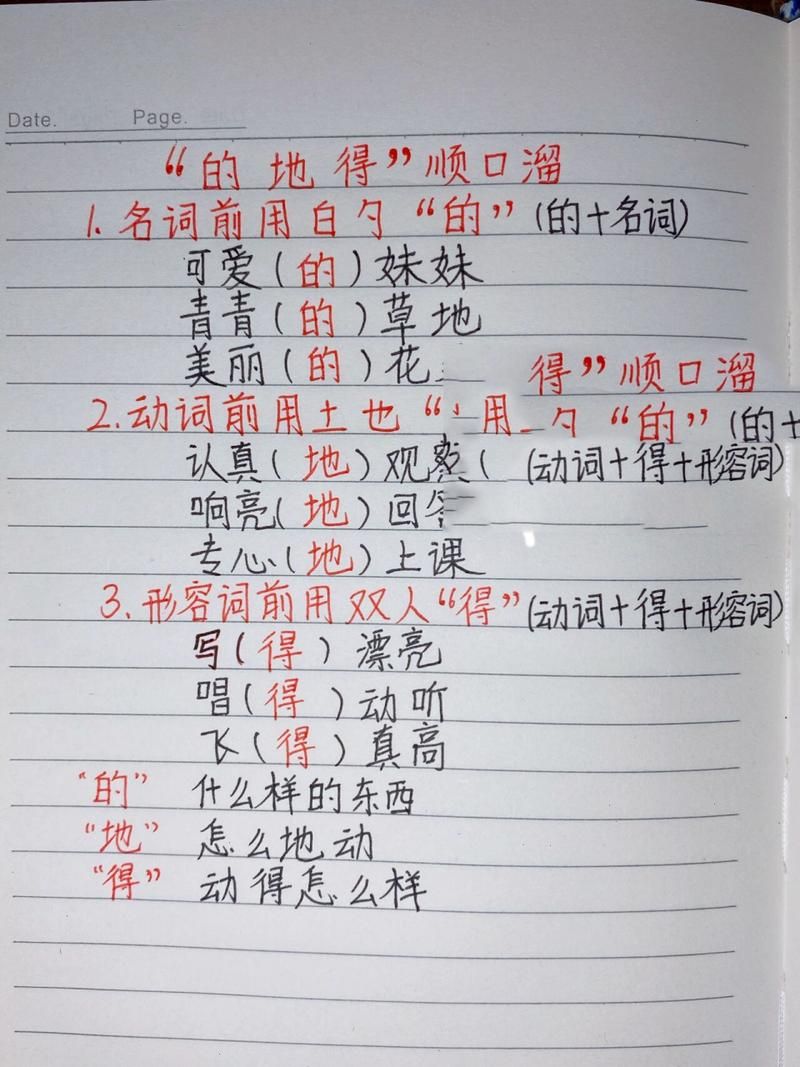 Date. Page.
“的 地 得”顺口溜
1. 名词前用白勺“的”(的+名词)
可爱(的)妹妹
青青(的)草地
美丽(的)花
得”顺口溜
2. 动词前用土也“
用 勺“的”(的+
认真(地)观察(
(动词+得+形容词)
响亮(地)回
专心(地)上课
3. 形容词前用双人“得”(动词+得+形容词)
写(得)漂亮
唱(得)动听
飞(得)真高
“的” 什么样的东西
“地” 怎么地动
“得” 动得怎么样